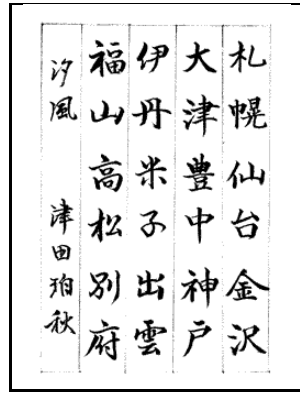 札幌仙台金沢
大津豊中神戸
伊丹米子出雲
福山高松別府
汐風 津田珀秋